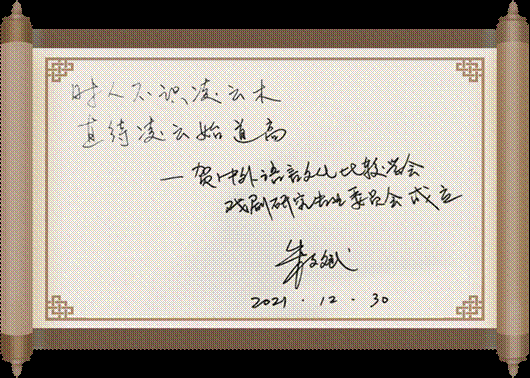 时人不识凌云木
直待凌云始道高
—贺中外语言文化比较学会
戏剧研究专业委员会成立
朱文斌
2021.12.30